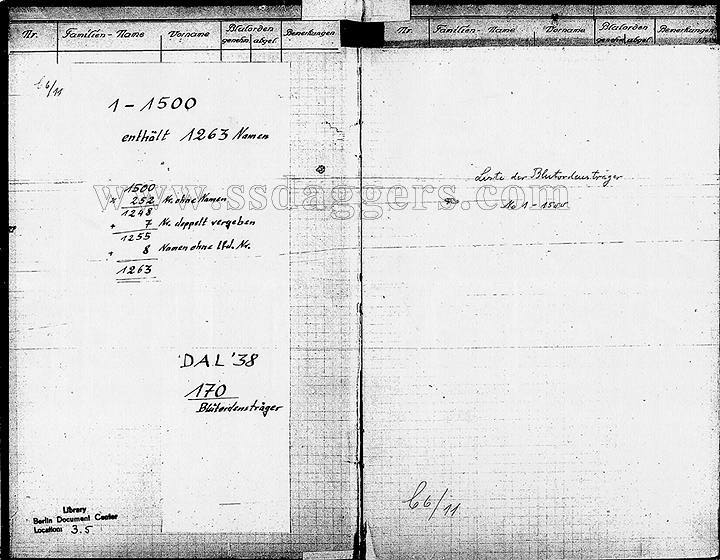 Nr. Familien-Name Vorname Blutorden genehm. abgel. Bemerkungen
C 6/11
1 - 1500
enthält 1263 Namen
1500
252 Nr. ohne Namen
1248
+ 7 Nr. doppelt vergeben
1255
+ 8 Namen ohne lfd. Nr.
1263
DAL '38
170
Blutordensträger
Library
Berlin Document Center
Location: 3.5
Nr. Familien-Name Vorname Blutorden genehm. abgel. Bemerkungen
Liste der Blutordensträger
No 1 - 1500
C 6/11
www.ssdaggers.com